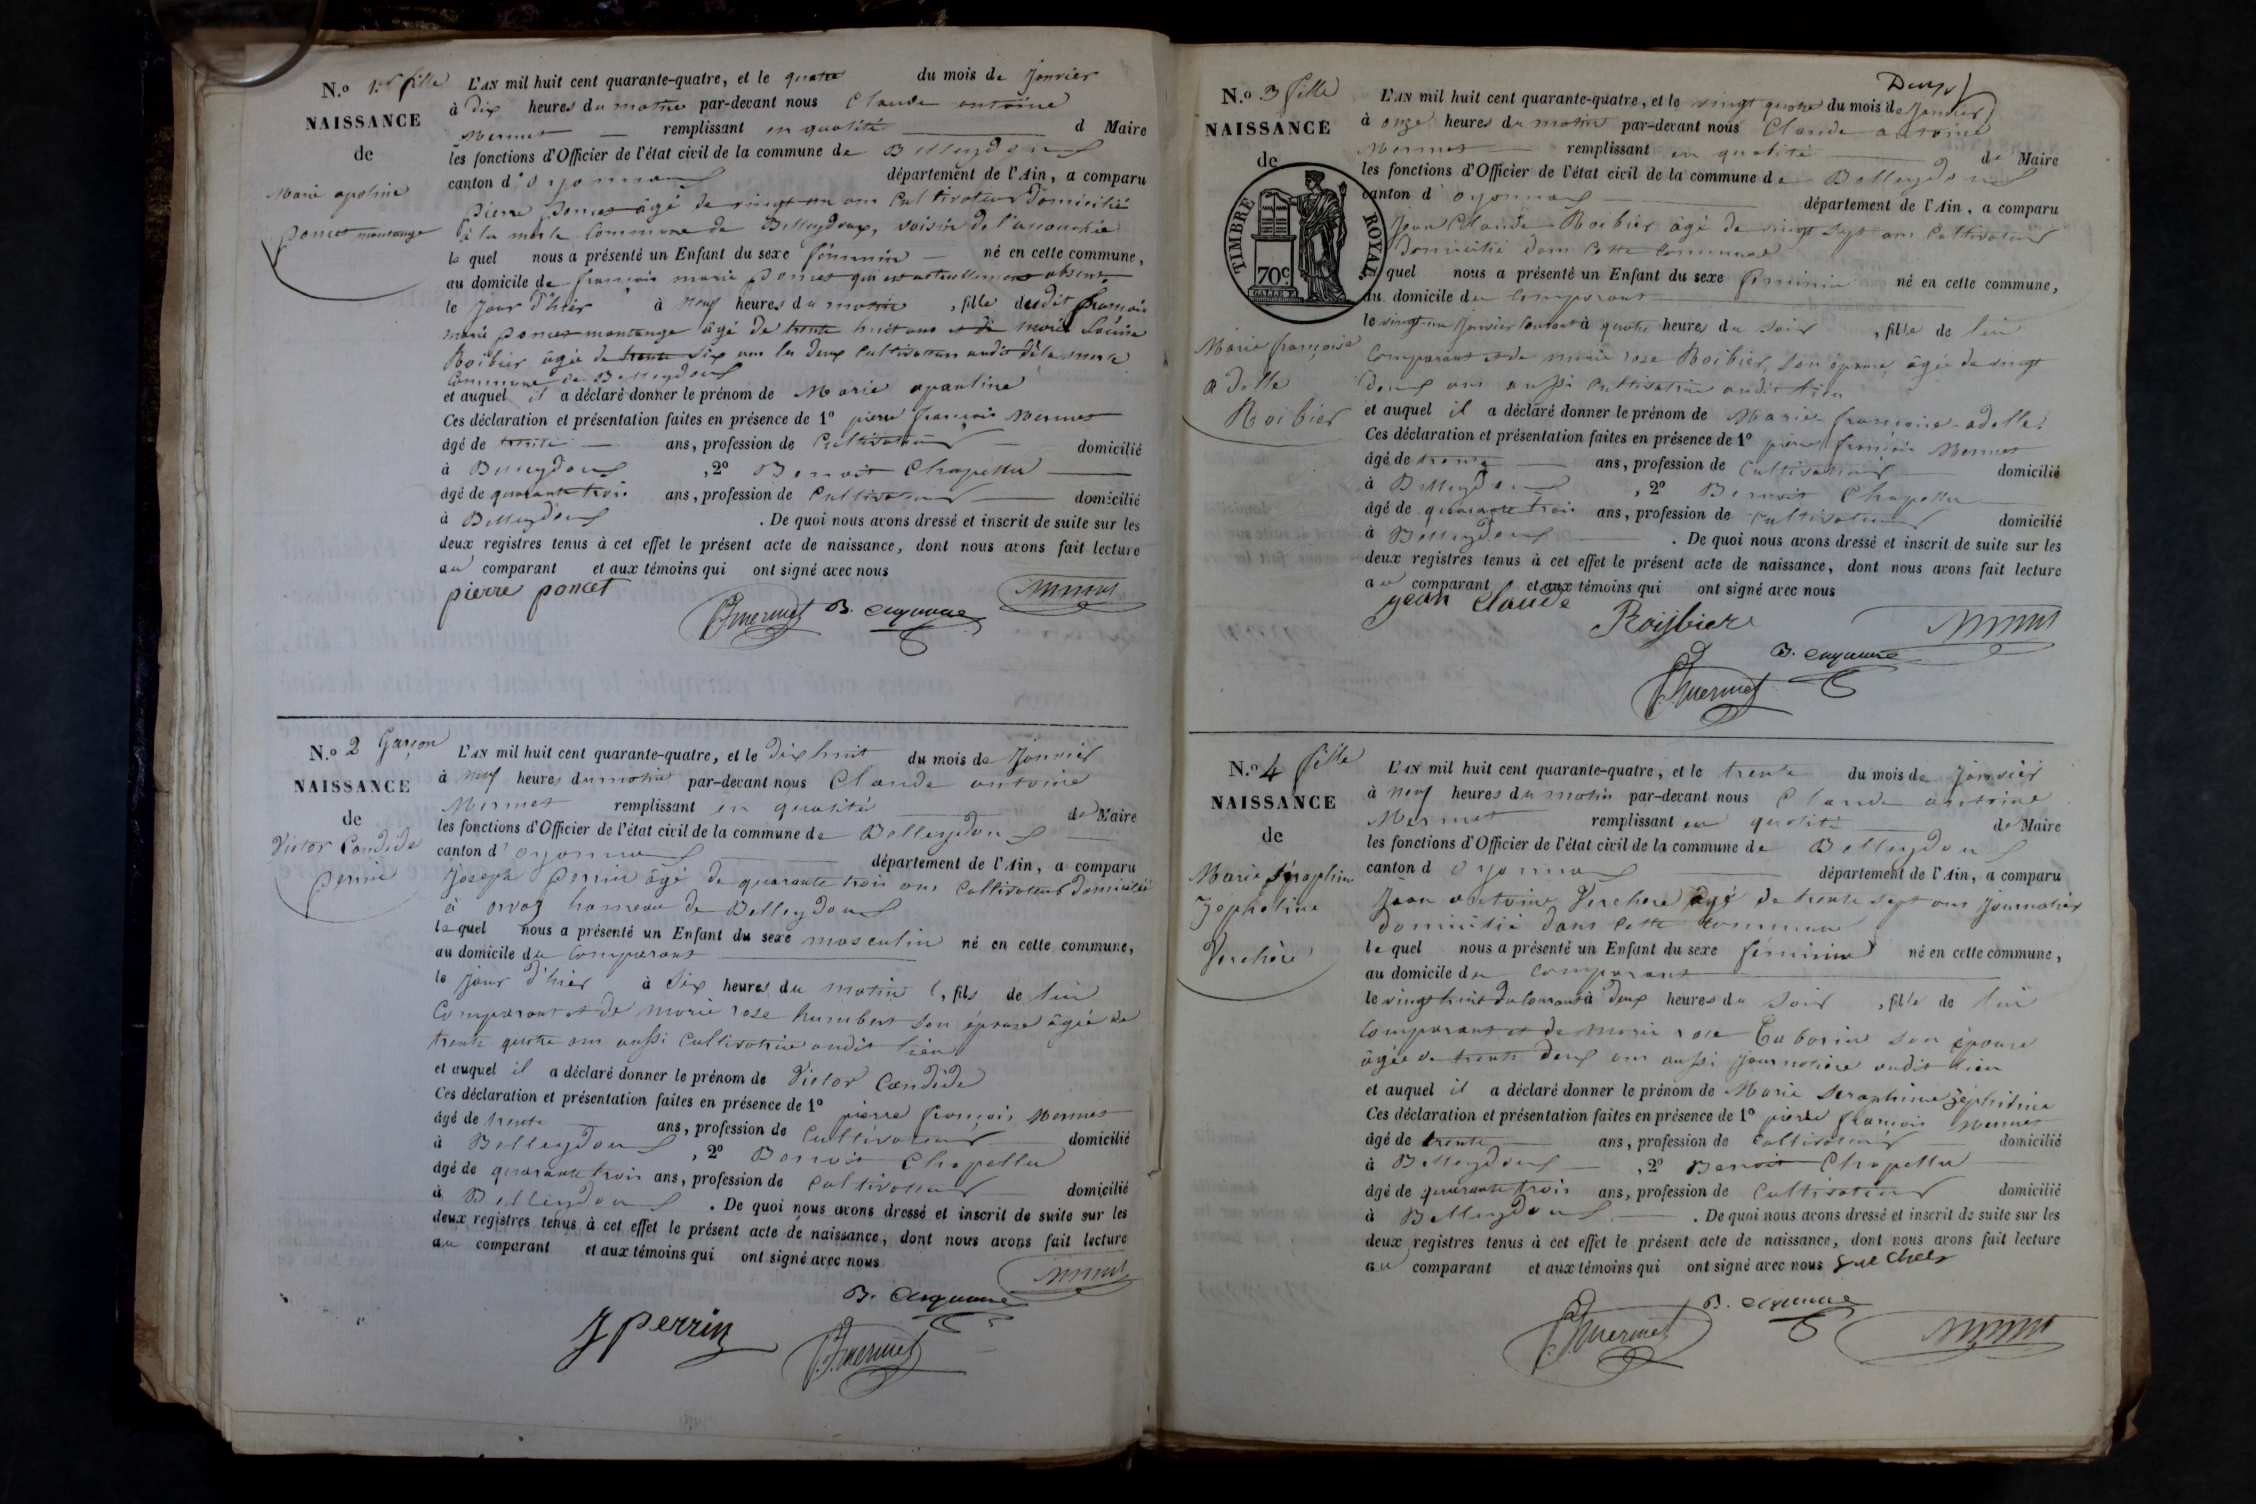 N.o 1er fille
NAISSANCE
de
Marie apoline
poncet montange
L'AN mil huit cent quarante-quatre, et le quatre du mois de Janvier
à dix heures du matin par-devant nous Claude antoine
Mermet remplissant en qualité d Maire
les fonctions d'Officier de l'état civil de la commune de Belleydoux
canton d'oyonnax département de l'Ain, a comparu
pierre poncet âgé de vingt un ans Cultivateur domicilié
à la même Commune de Belleydoux, voisin de l'accouchée
le quel nous a présenté un Enfant du sexe féminin né en cette commune,
au domicile de françois marie poncet qui est actuellement absent,
le Jour d'hier à neuf heures du matin, fille dudit françois
marie poncet montange âgé de trente huit ans et de marie Louise
Roibier âgée de trente six ans les deux Cultivateurs audit de la même
Commune de Belleydoux
et auquel il a déclaré donner le prénom de Marie apauline
Ces déclaration et présentation faites en présence de 1o pierre françois Mermet
âgé de trente ans, profession de Cultivateur domicilié
à Belleydoux, 2o Benoit Chapellu
âgé de quarante trois ans, profession de Cultivateur domicilié
à Belleydoux. De quoi nous avons dressé et inscrit de suite sur les
deux registres tenus à cet effet le présent acte de naissance, dont nous avons fait lecture
au comparant et aux témoins qui ont signé avec nous
pierre poncet
mermet
Mermet
N.o 2 Garçon
NAISSANCE
de
Victor Candide
perrin
L'AN mil huit cent quarante-quatre, et le dix huit du mois de Janvier
à neuf heures du matin par-devant nous Claude antoine
Mermet remplissant en qualité de Maire
les fonctions d'Officier de l'état civil de la commune de Belleydoux
canton d'oyonnax département de l'Ain, a comparu
Joseph perrin âgé de quarante trois ans Cultivateur domicilié
à orvaz hameau de Belleydoux
le quel nous a présenté un Enfant du sexe masculin né en cette commune,
au domicile du Comparant
le Jour d'hier à Six heures du matin, fils de lui
Comparant et de marie rose humbert son épouse âgée de
trente quatre ans aussi Cultivatrice audit lieu
et auquel il a déclaré donner le prénom de Victor Candide
Ces déclaration et présentation faites en présence de 1o pierre françois Mermet
âgé de trente ans, profession de Cultivateur domicilié
à Belleydoux, 2o Benoit Chapellu
âgé de quarante trois ans, profession de Cultivateur domicilié
à Belleydoux. De quoi nous avons dressé et inscrit de suite sur les
deux registres tenus à cet effet le présent acte de naissance, dont nous avons fait lecture
au comparant et aux témoins qui ont signé avec nous
Mermet
J perrin
mermet
Deux
N.o 3 fille
NAISSANCE
de
TIMBRE ROYAL
70c
Marie françoise
adelle
Roibier
L'AN mil huit cent quarante-quatre, et le vingt quatre du mois de Janvier
à onze heures du matin par-devant nous Claude antoine
Mermet remplissant en qualité de Maire
les fonctions d'Officier de l'état civil de la commune de Belleydoux
canton d'oyonnax département de l'Ain, a comparu
Jean Claude Roibier âgé de vingt sept ans Cultivateur
domicilié dans Cette Commune
quel nous a présenté un Enfant du sexe féminin né en cette commune,
au domicile du Comparant
le vingt un Janvier Courant à quatre heures du soir, fille de lui
Comparant et de marie rose Roibier, son épouse, âgée de vingt
deux ans aussi Cultivatrice audit lieu
et auquel il a déclaré donner le prénom de Marie françoise adelle
Ces déclaration et présentation faites en présence de 1o pierre françois Mermet
âgé de trente ans, profession de Cultivateur domicilié
à Belleydoux, 2o Benoit Chapellu
âgé de quarante trois ans, profession de Cultivateur domicilié
à Belleydoux. De quoi nous avons dressé et inscrit de suite sur les
deux registres tenus à cet effet le présent acte de naissance, dont nous avons fait lecture
au comparant et aux témoins qui ont signé avec nous
jean claude
Roijbier
Mermet
mermet
N.o 4 fille
NAISSANCE
de
Marie séraphine
Zéphéline
Verchère
L'AN mil huit cent quarante-quatre, et le trente du mois de Janvier
à neuf heures du matin par-devant nous Claude antoine
Mermet remplissant en qualité de Maire
les fonctions d'Officier de l'état civil de la commune de Belleydoux
canton d oyonnax département de l'Ain, a comparu
Jean antoine Verchère âgé de trente sept ans Journalier
domicilié dans Cette Commune
le quel nous a présenté un Enfant du sexe féminin né en cette commune,
au domicile du Comparant
le vingt huit du Courant à deux heures du soir, fille de lui
Comparant et de marie rose Taborin son épouse
âgée de trente deux ans aussi Journalière audit lieu
et auquel il a déclaré donner le prénom de Marie Seraphine Zéphirine
Ces déclaration et présentation faites en présence de 1o pierre françois Mermet
âgé de trente ans, profession de Cultivateur domicilié
à Belleydoux, 2o Benoit Chapellu
âgé de quarante trois ans, profession de Cultivateur domicilié
à Belleydoux. De quoi nous avons dressé et inscrit de suite sur les
deux registres tenus à cet effet le présent acte de naissance, dont nous avons fait lecture
au comparant et aux témoins qui ont signé avec nous
mermet
Mermet